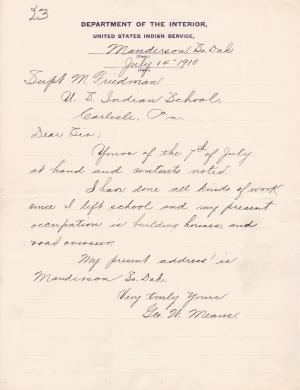 23
DEPARTMENT OF THE INTERIOR,
UNITED STATES INDIAN SERVICE,
Manderson So. Dak
July 14 1910
Supt M. Friedman
U. S. Indian School,
Carlisle, Pa.
Dear Sir:
Yours of the 7th of July
at hand and contents noted.
I han done all kinds of work
since I left school and my present
occupation is building houses, and
road overseer.
My present address is
Manderson So. Dak.
Very truly Yours
Geo. W. Means